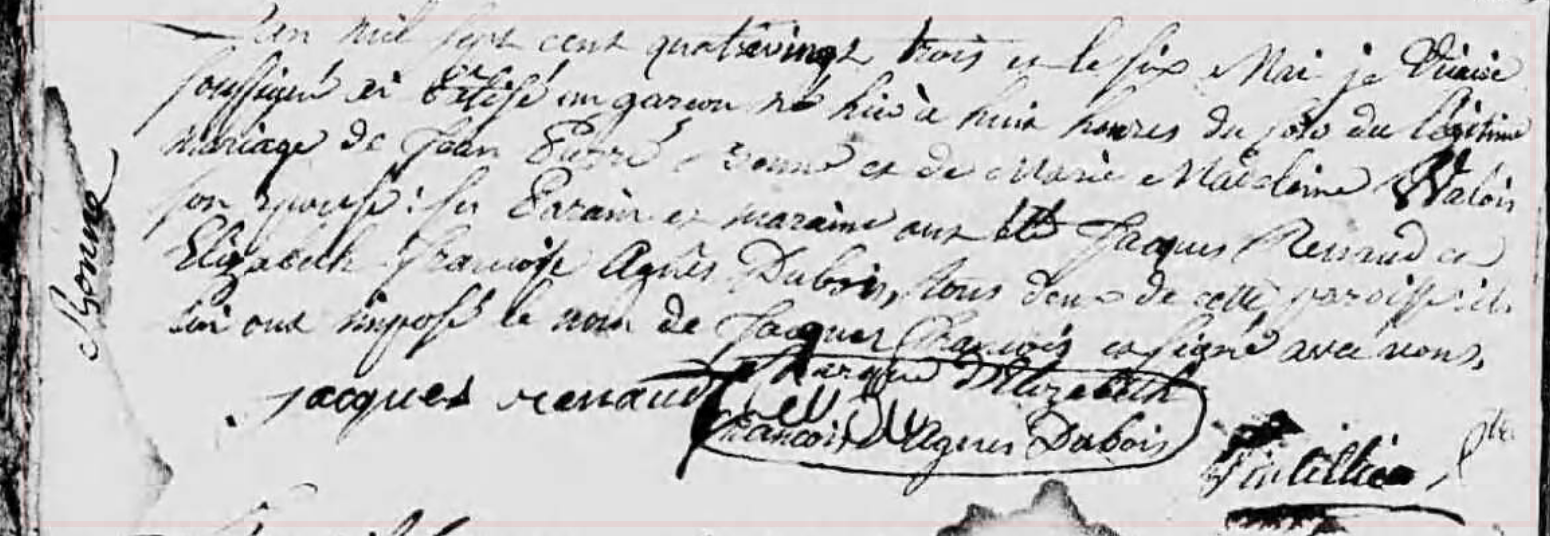 L'an mil sept cent quatrevingt trois et le six Mai je Vicaire
soussigné ai batisé un garcon né hier à huit heures du soir du légitime
mariage de Jean Pierre Bonne et de Marie Madeleine Valois
son epouse: ses Parain et maraine ont été Jacques Renaud et
Elizabeth Francoise Agnès Dubois, tous deux de cette paroisse ils
lui ont imposé le nom de Jacques Francois et signé avec nous.
Bonne
jacques renaud
marque d'Elizabeth
francoise Agnes Dubois
ptre